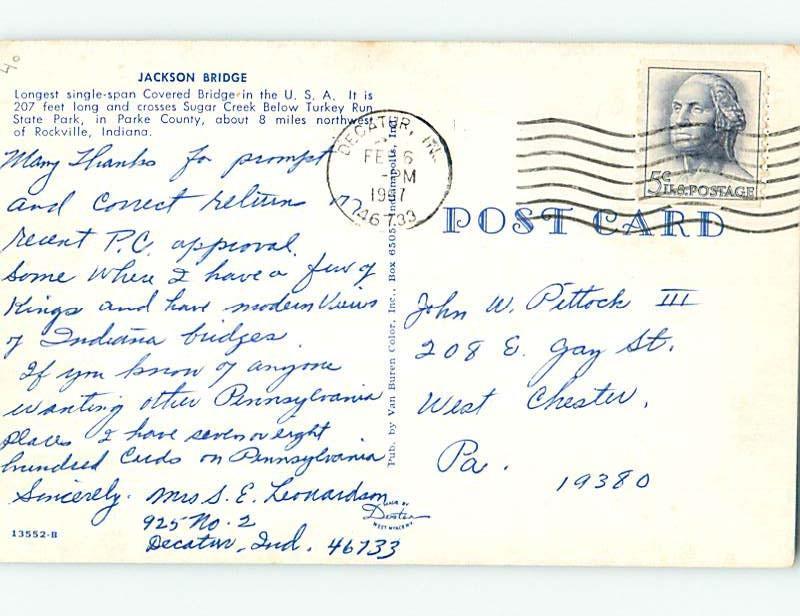 40
JACKSON BRIDGE
Longest single-span Covered Bridge in the U. S. A. It is
207 feet long and crosses Sugar Creek Below Turkey Run
State Park, in Parke County, about 8 miles northwest
of Rockville, Indiana.
Many Thanks for prompt
and correct return in
recent P.C. approval.
Some Where I have a few of
Kings and have modern Views
of Indiana bridges.
If you know of anyone
wanting other Pennsylvania
places I have seven or eight
hundred Cards on Pennsylvania
Sincerely. Mrs S. E. Leonardson
925 No. 2
Decatur, Ind. 46733
13552-B
Pub. by Van Buren Color, Inc., Box 6505, Indianapolis, Ind.
MADE BY
Dexter
WEST NYACK, N.Y.
DECATUR, IN
FEB 6
PM
1967
46733
5¢ U.S. POSTAGE
POST CARD
John W. Pittock III
208 E. Gay St.
West Chester,
Pa.
19380